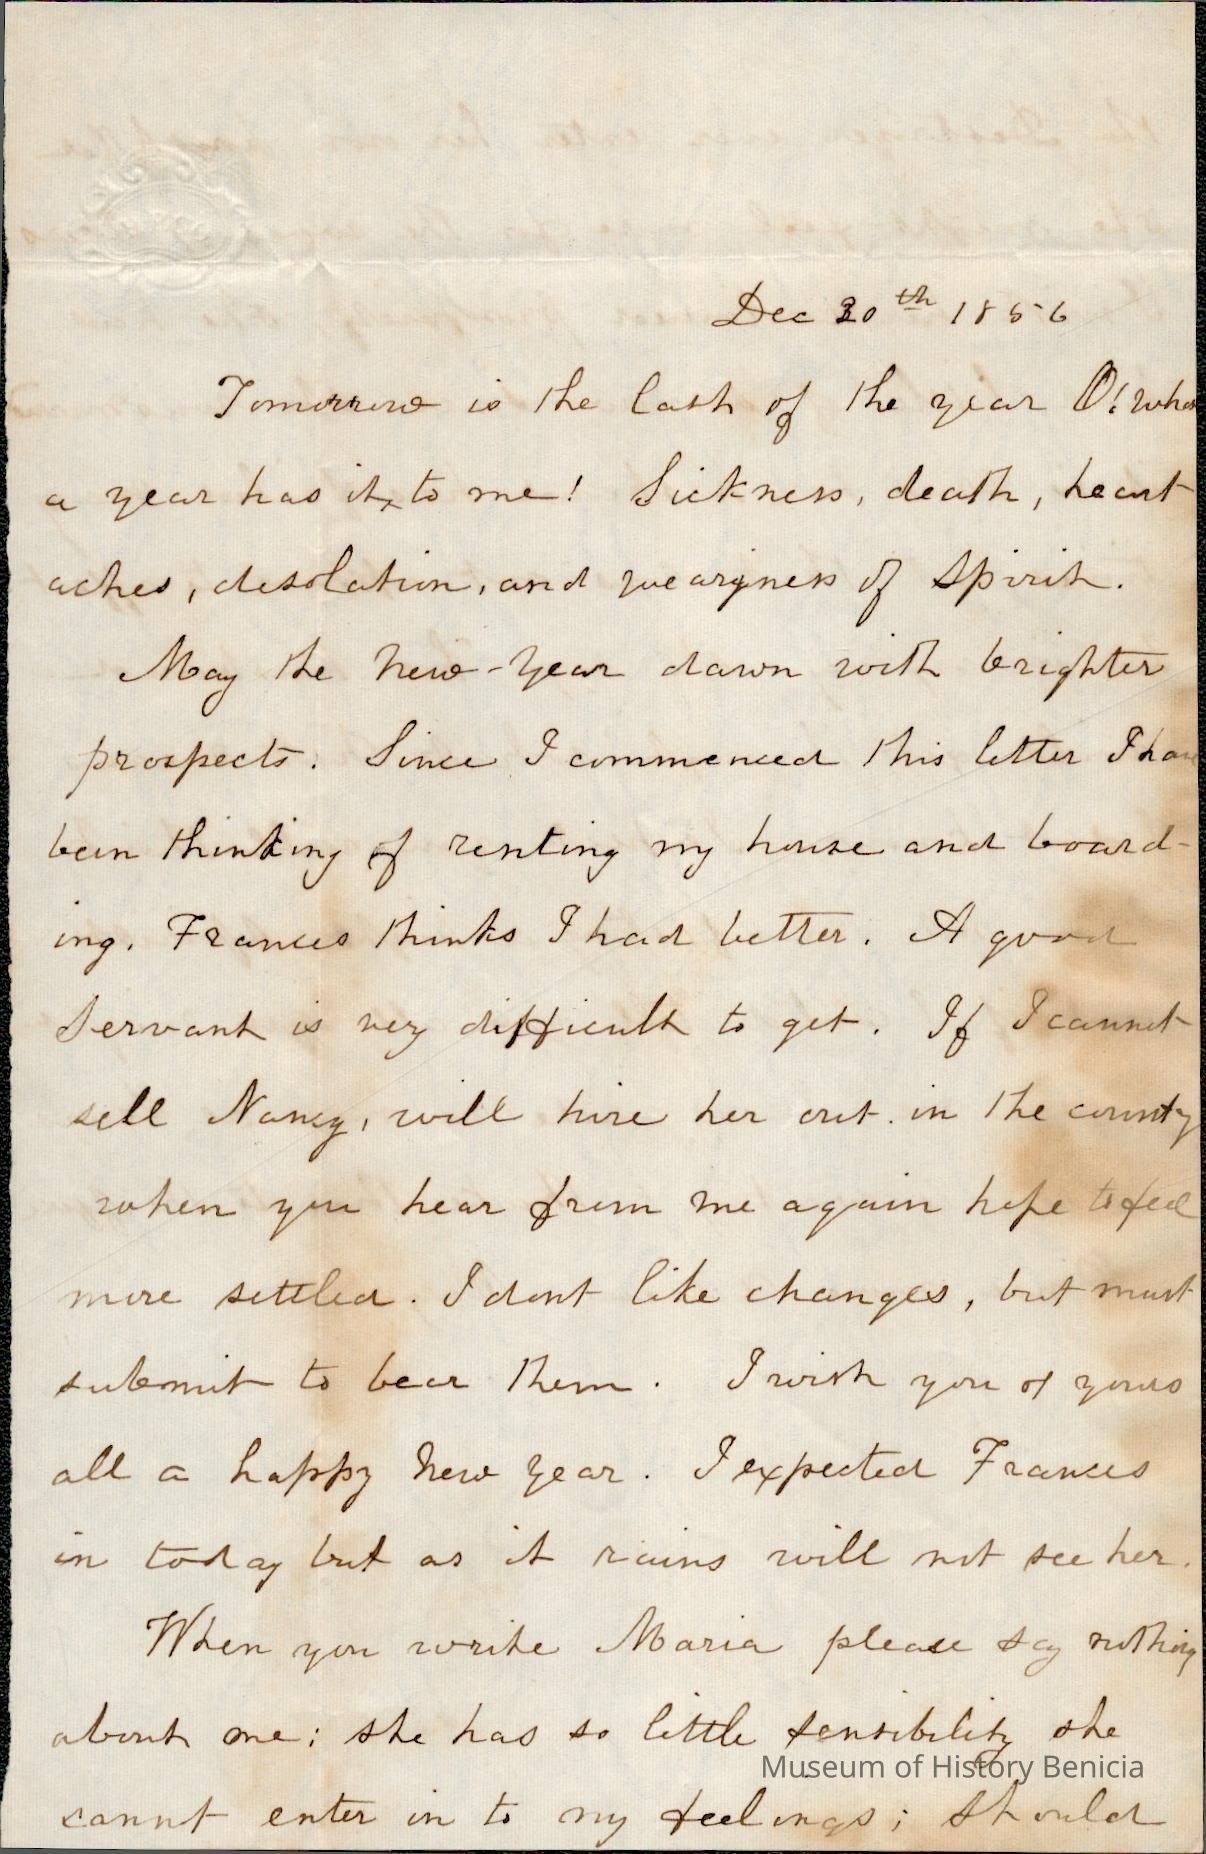 Dec 30th 1856
Tomorrow is the last of the year O! what
a year has it x to me! Sickness, death, heart
aches, desolation, and wearyness of spirit.
May the New-Year dawn with brighter
prospects. Since I commenced this letter I have
been thinking of renting my house and board-
ing. Frances thinks I had better. A good
Servant is very difficult to get. If I cannot
sell Nancy, will hire her out in the county
when you hear from me again hope to feel
more settled. I dont like changes, but must
submit to bear them. I wish you & yours
all a happy New Year. I expected Frances
in today but as it rains will not see her.
When you write Maria please say nothing
about me; she has so little sensibility she
cannot enter in to my feelings; should
Museum of History Benicia